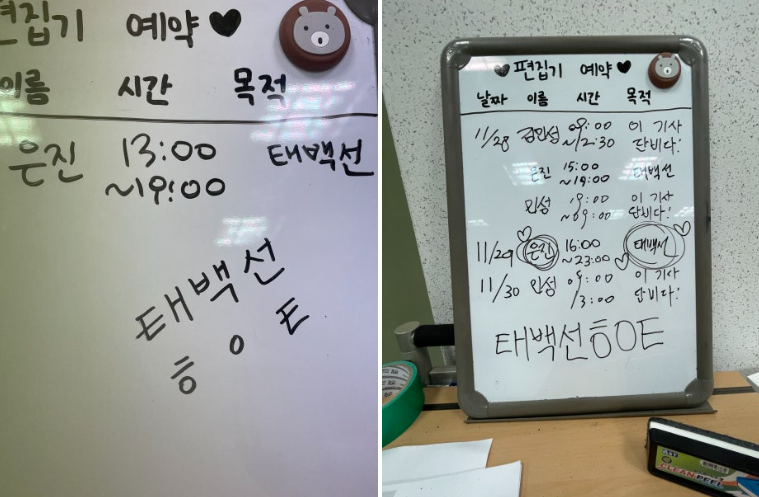 편집기 예약 ♥
이름 시간 목적
은진 13:00 태백선
~19:00
태백선
ㅎㅇㅌ
♥편집기 예약♥
날짜 이름 시간 목적
11/28 김민성 09:00 이 기사
~12:30 단비다!
은진 15:00 태백선
~19:00
민성 19:00 이 기사
~09:00 단비다!
11/29 은진 16:00 태백선
~23:00
11/30 민성 09:00 이 기사
13:00 단비다!
태백선ㅎㅇㅌ
CLEAN PEEL